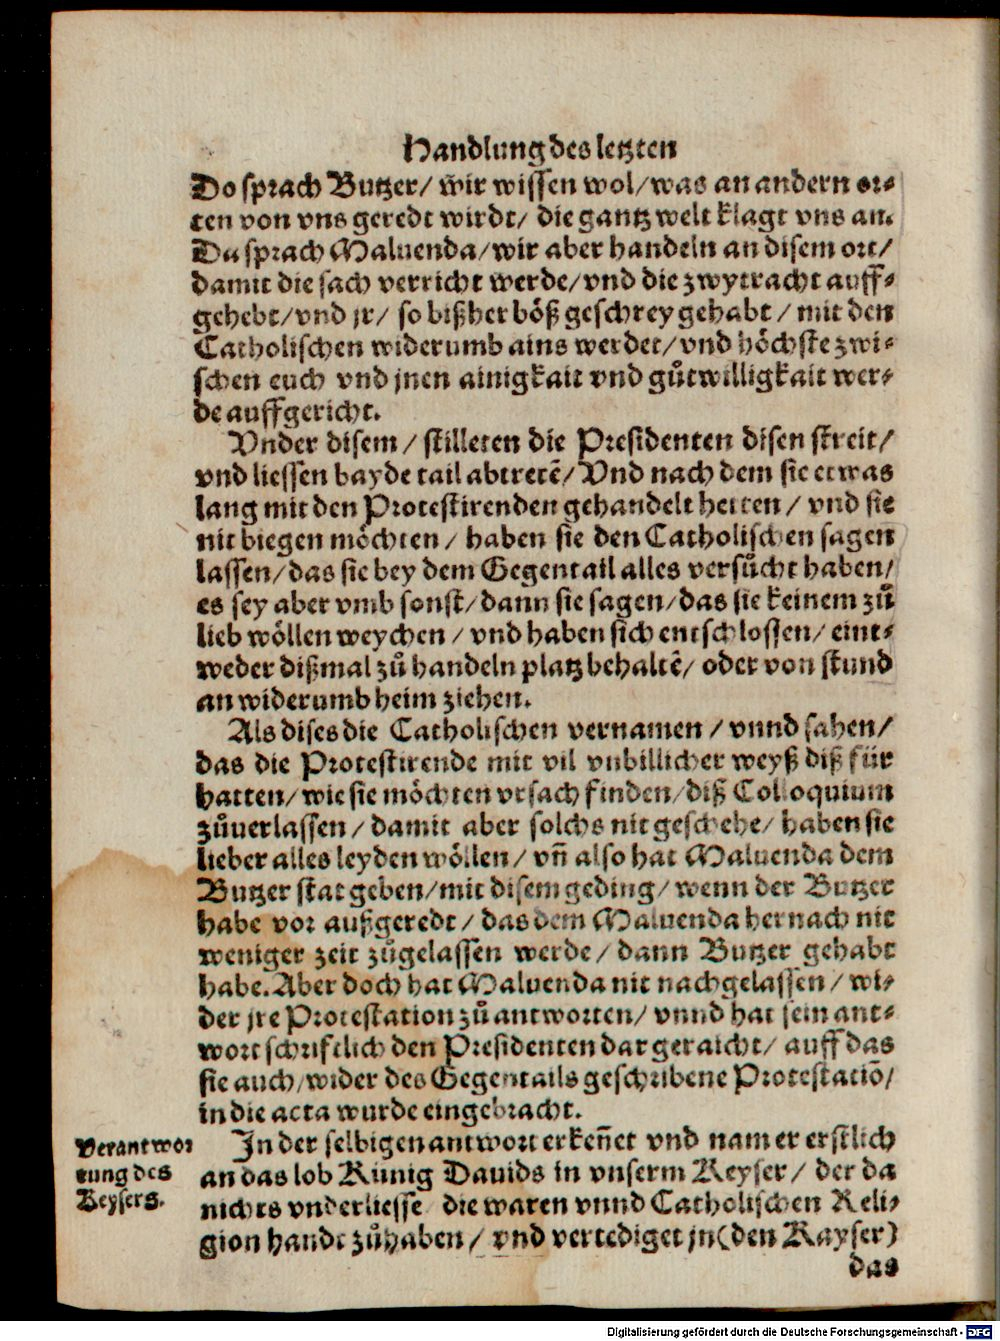 Handlung des letzten
Do sprach Butzer/ wir wissen wol/was an andern or⸗
ten von vns geredt wirdt/ die gantz welt klagt vns an.
Da sprach Maluenda/wir aber handeln an disem ort/
damit die sach verricht werde/vnd die zwytracht auff⸗
gehebt/vnd jr/ so bißher böß geschrey gehabt/ mit den
Catholischen widerumb ains werdet/vnd höchste zwi⸗
schen euch vnd jnen ainigkait vnd gůtwilligkait wer⸗
de auffgericht.
Vnder disem/ stilleten die Presidenten disen streit/
vnd liessen bayde tail abtretē/Vnd nach dem sie etwas
lang mit den Protestirenden gehandelt hetten/ vnd sie
nit biegen möchten/ haben sie den Catholischen sagen
lassen/das sie bey dem Gegentail alles versůcht haben/
es sey aber vmb sonst/dann sie sagen/das sie keinem zů
lieb wöllen weychen/ vnd haben sich entschlossen/ eint⸗
weder dißmal zů handeln platz behaltē/ oder von stund
an widerumb heim ziehen.
Als dises die Catholischen vernamen/ vnnd sahen/
das die Protestirende mit vil vnbillicher weyß diß für
hatten/wie sie möchten vrsach finden/diß Colloquium
zůuerlassen/ damit aber solchs nit geschehe/ haben sie
lieber alles leyden wöllen/ vñ also hat Maluenda dem
Butzer stat geben/mit disem geding/ wenn der Butzer
habe vor außgeredt/ das dem Maluenda hernach nit
weniger zeit zůgelassen werde/ dann Butzer gehabt
habe. Aber doch hat Maluenda nit nachgelassen/ wi⸗
der jre Protestation zů antworten/ vnnd hat sein ant⸗
wort schriftlich den Presidenten dargeraicht/ auff das
sie auch/wider des Gegentails geschribene Protestatiō/
in die acta wurde eingebracht.
Verantwor
tung des
Keysers.
In der selbigen antwort erkeñet vnd nam er erstlich
an das lob Künig Dauids in vnserm Keyser/ der da
nichts vnderliesse die waren vnnd Catholischen Reli⸗
gion handt zůhaben/ vnd vertediget jn(den Kayser)
das
Digitalisierung gefördert durch die Deutsche Forschungsgemeinschaft - DFG